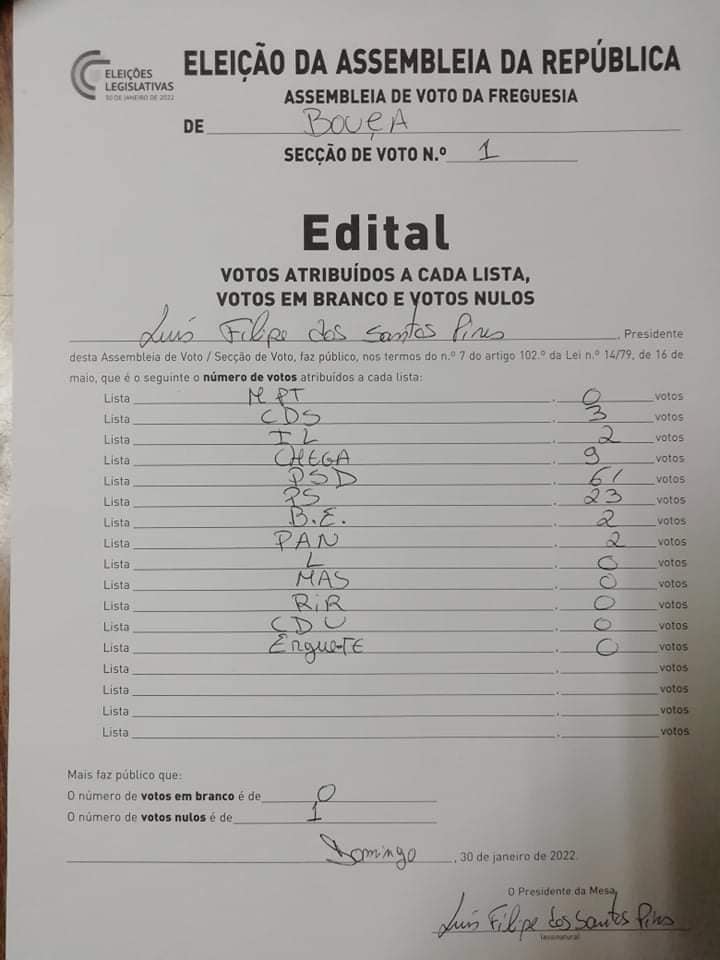 ELEIÇÕES
LEGISLATIVAS
30 DE JANEIRO DE 2022
ELEIÇÃO DA ASSEMBLEIA DA REPÚBLICA
ASSEMBLEIA DE VOTO DA FREGUESIA
DE BOUÇA
SECÇÃO DE VOTO N.º 1
Edital
VOTOS ATRIBUÍDOS A CADA LISTA,
VOTOS EM BRANCO E VOTOS NULOS
Luís Filipe dos Santos Pires, Presidente
desta Assembleia de Voto / Secção de Voto, faz público, nos termos do n.º 7 do artigo 102.º da Lei n.º 14/79, de 16 de
maio, que é o seguinte o número de votos atribuídos a cada lista:
Lista MPT . 0 votos
Lista CDS . 3 votos
Lista IL . 2 votos
Lista CHEGA . 9 votos
Lista PSD . 61 votos
Lista PS . 23 votos
Lista B.E. . 2 votos
Lista PAN . 2 votos
Lista L . 0 votos
Lista MAS . 0 votos
Lista RiR . 0 votos
Lista CDU . 0 votos
Lista Ergue-TE . 0 votos
Lista . votos
Lista . votos
Lista . votos
Lista . votos
Mais faz público que:
O número de votos em branco é de 0
O número de votos nulos é de 1
Domingo, 30 de janeiro de 2022.
O Presidente da Mesa,
Luís Filipe dos Santos Pires
(assinatura)